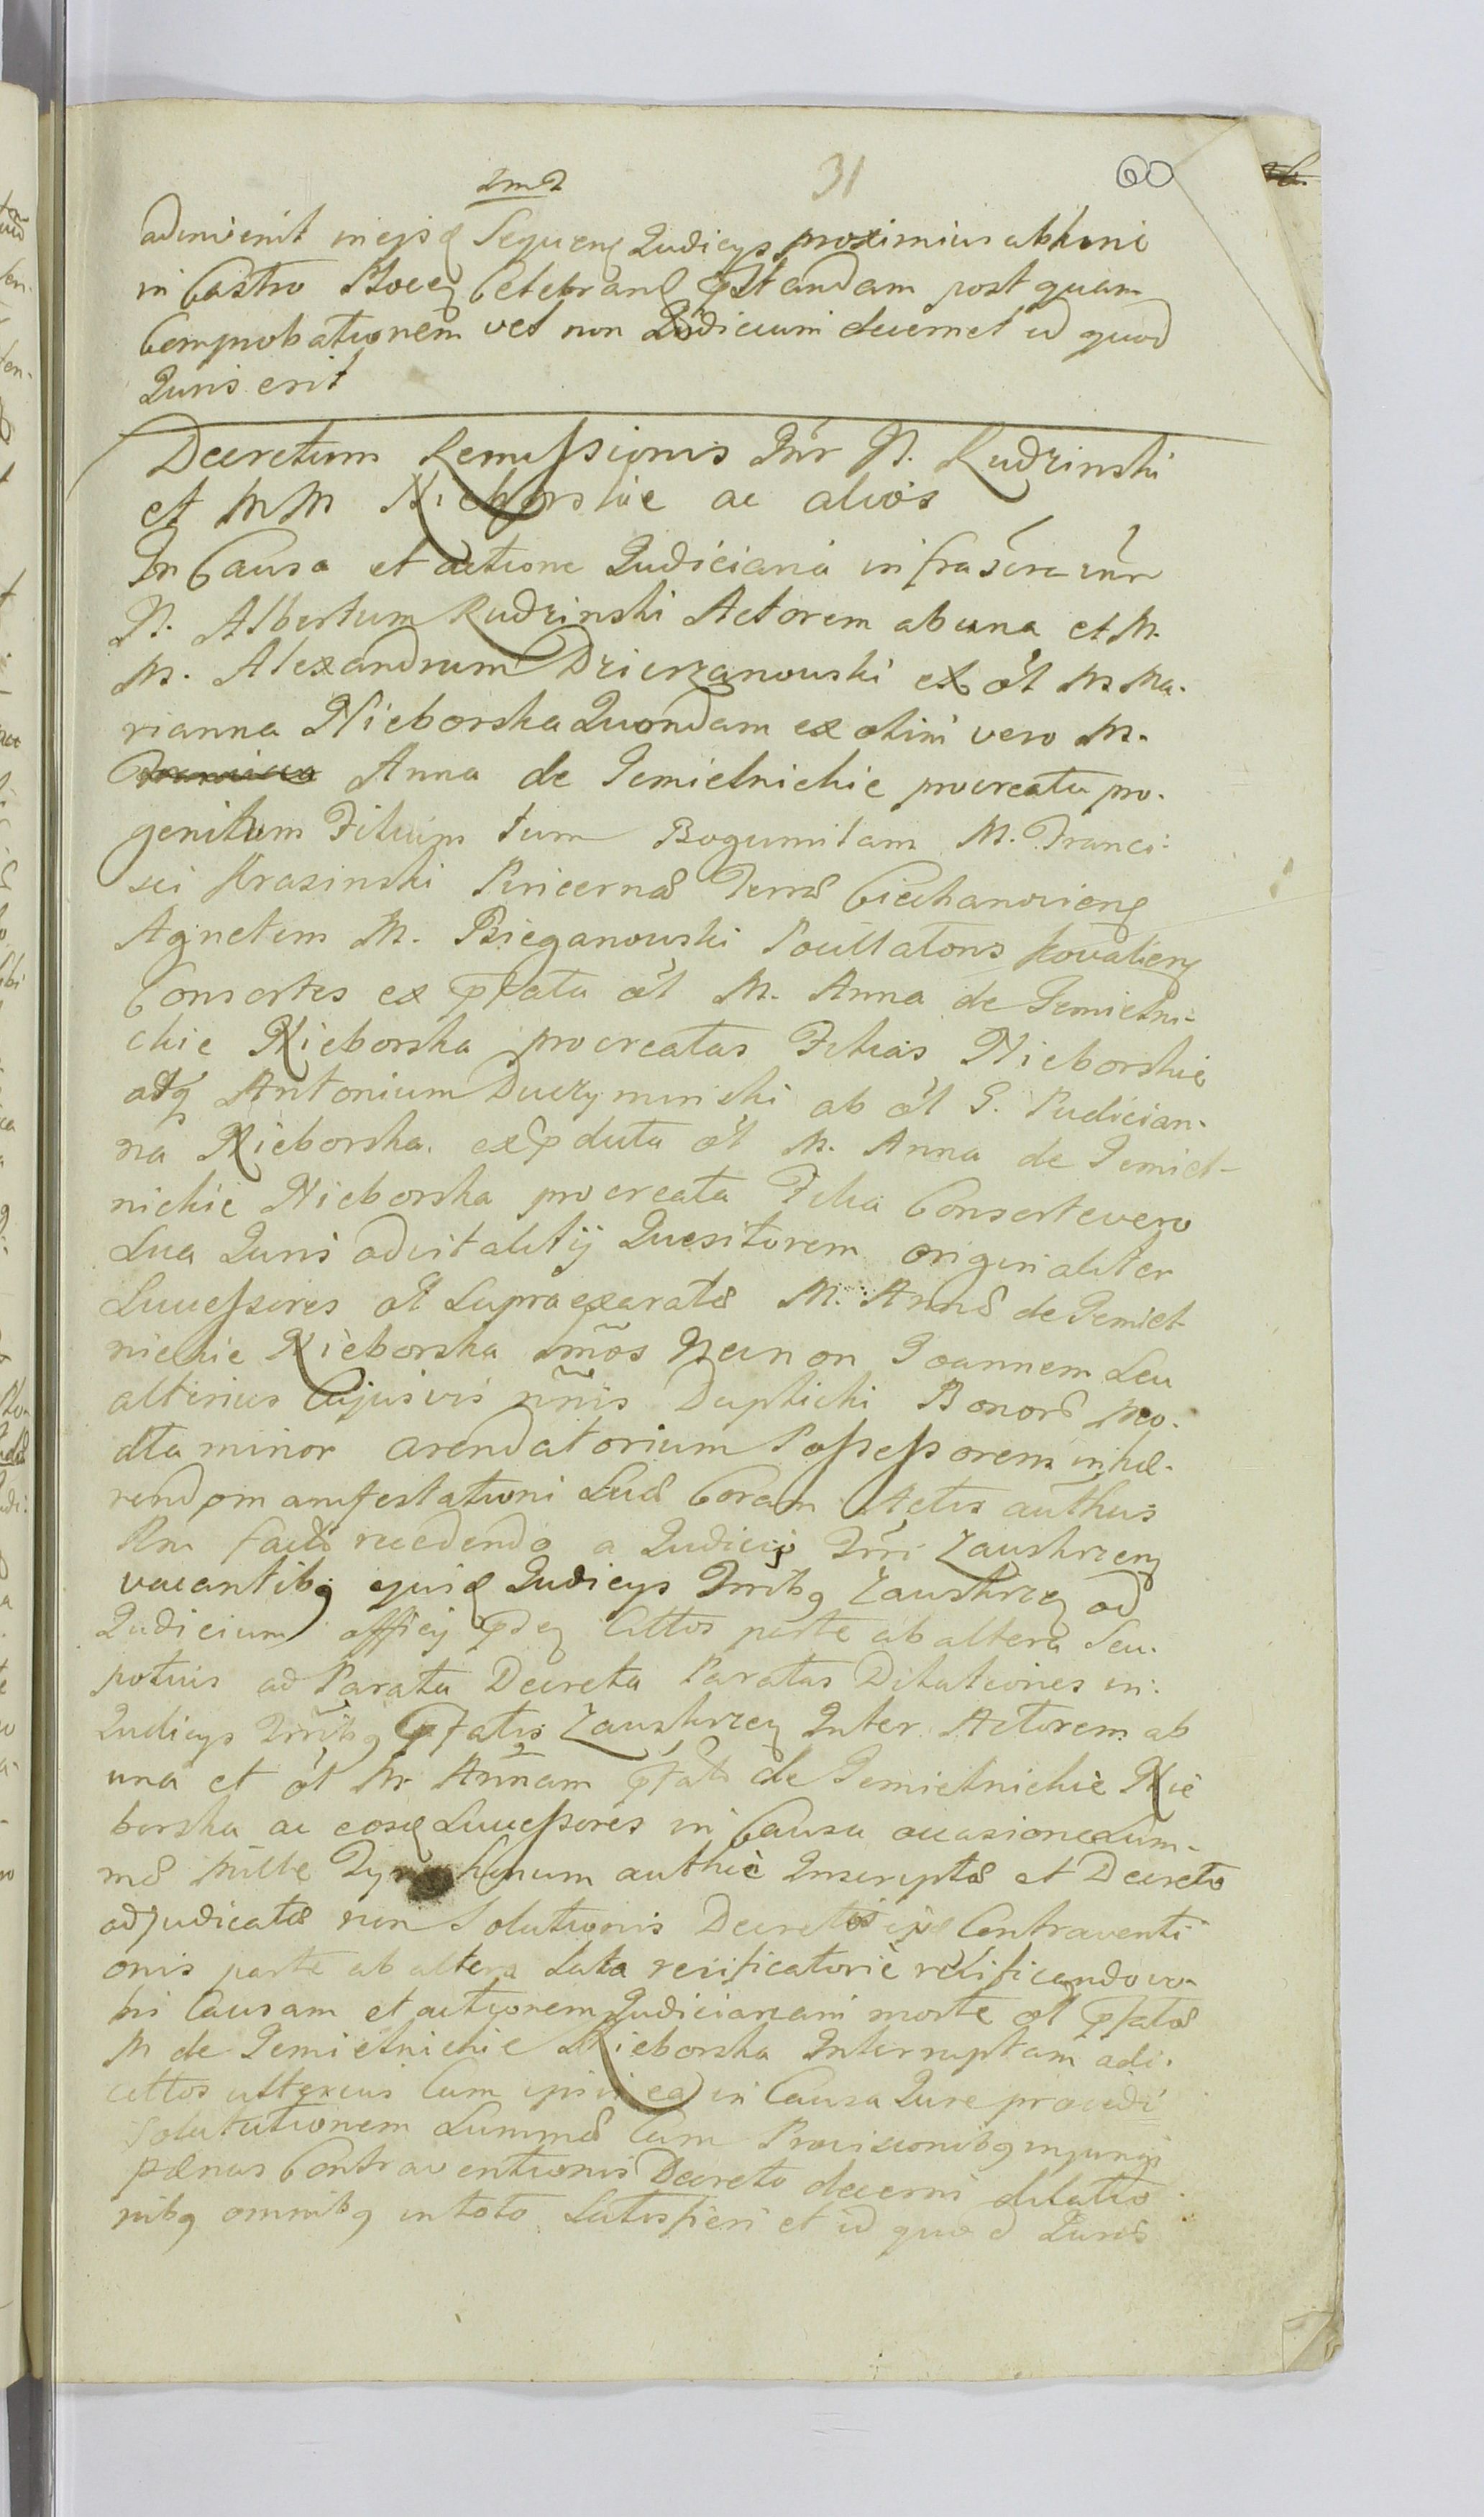 31
60
adinvenit in ejsq Sequenq Judicys proximius abhinc
in Castro Plocen Celebrand pstandam post quam
Comprobationem vel non Judicium decernet id quod
Juris erit
Decretum Remissionis Inr N. Rudzinski
et M M Nieborskie ac alios
In Causa et actione Judiciaria infrascri inr
N. Albertum Rudzinski Actorem ab una et M.
M. Alexandrum Dzierzanowski ex ol M Ma-
rianna Nieborska Quondam ex olim vero M.
Anna de Jemielnickie procreata pro-
genitum Filium tum Bogumilam M. Franci-
sci Krasinski Pincernæ Terræ Ciechanovienq
Agnetem M. Bieganowski Pocillatoris Kovalienq
Consortes ex pfata ol M. Anna de Jemielni-
ckie Nieborska procreatas Filias Nieborskie
adq Antonium Duczyminski ab ol G. Pudician-
na Nieborska ex pdicta ol M. Anna de Jemiel-
nickie Nieborska procreata Filia Consorte vero
Sua Juris advitalitij Quesitorem originaliter
Successores ol Supraexaratæ M. Annæ de Jemiel-
nickie Nieborska Necnon Joannem Seu
alterius Cujusvis nnis Duplicki Bonor Mo-
dla minor arendatorium Possessorem inhæ-
rend manifestationi Suæ Coram Actis authus
Pln factæ recedendo a Judicio Trri Zauskrzenq
vacantibq quiq Judicys Trribq Zauskrzeq ad
Judicium officij pdeq Cittos parte ab altera Seu
potius ad Parata Decreta Paratas Dilationes in
Judicys Trribq pfatis Zauskrzeq Inter Actorem ab
una et ol M Annam pfatæ de Jemielnickie Nie
borska ac eosq Successores in Causa occasione Sum-
mæ Mille Tymphonum authce Inscriptæ et Decreto
adjudicatæ non Solutionis Decretis ejsq Contraventi
onis parte ab altera Lata reificatorie reificando vo-
hi Causam et actionem Judiciariam morte ol pfatæ
M de Jemielnickie Nieborska Interruptam adci-
cittos ulterius Cum ipsis ea in Causa Jure procedi
Solutionem Summæ Cum Provisionibq injungi
pænas Contraventionis Decreto decerni dilatio
nibq omnibq in toto Satisfieri et id quod Juris